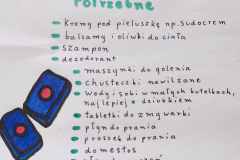 Potrzebne
kremy pod pieluszkę np. Sudocrem
balsamy i oliwki do ciała
szampon
dezodorant
maszynki do golenia
chusteczki nawilżane
wody i soki w małych butelkach,
najlepiej z dziubkiem
tabletki do zmywarki
płyn do prania
proszek do prania
domestos